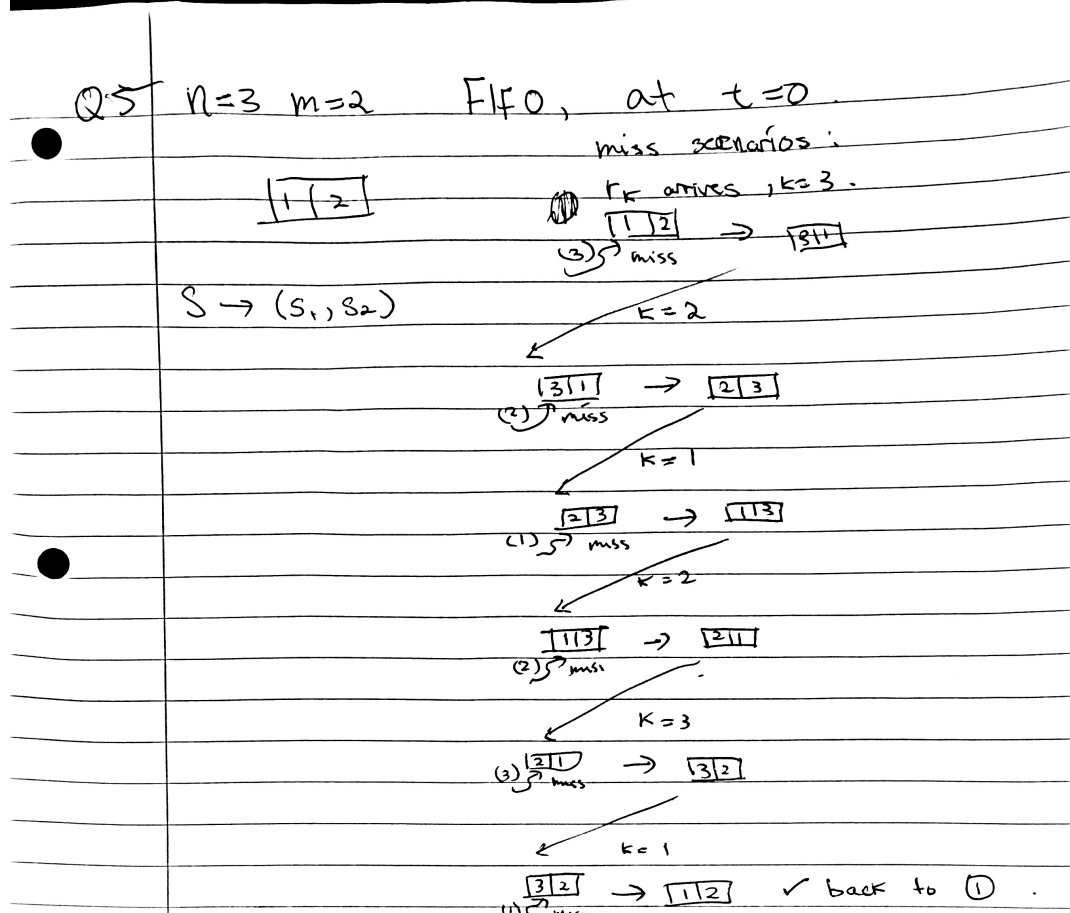 Q5 n=3 m=2 FIFO, at t=0.
miss scenarios:
1 2
rk arrives, k=3.
1 2 → 3 1
(3) miss
S → (S1, S2)
k=2
3 1 → 2 3
(2) miss
k=1
2 3 → 1 3
(1) miss
k=2
1 3 → 2 1
(2) miss
k=3
2 1 → 3 2
(3) miss
k=1
3 2 → 1 2 ✓ back to ①.
(1)